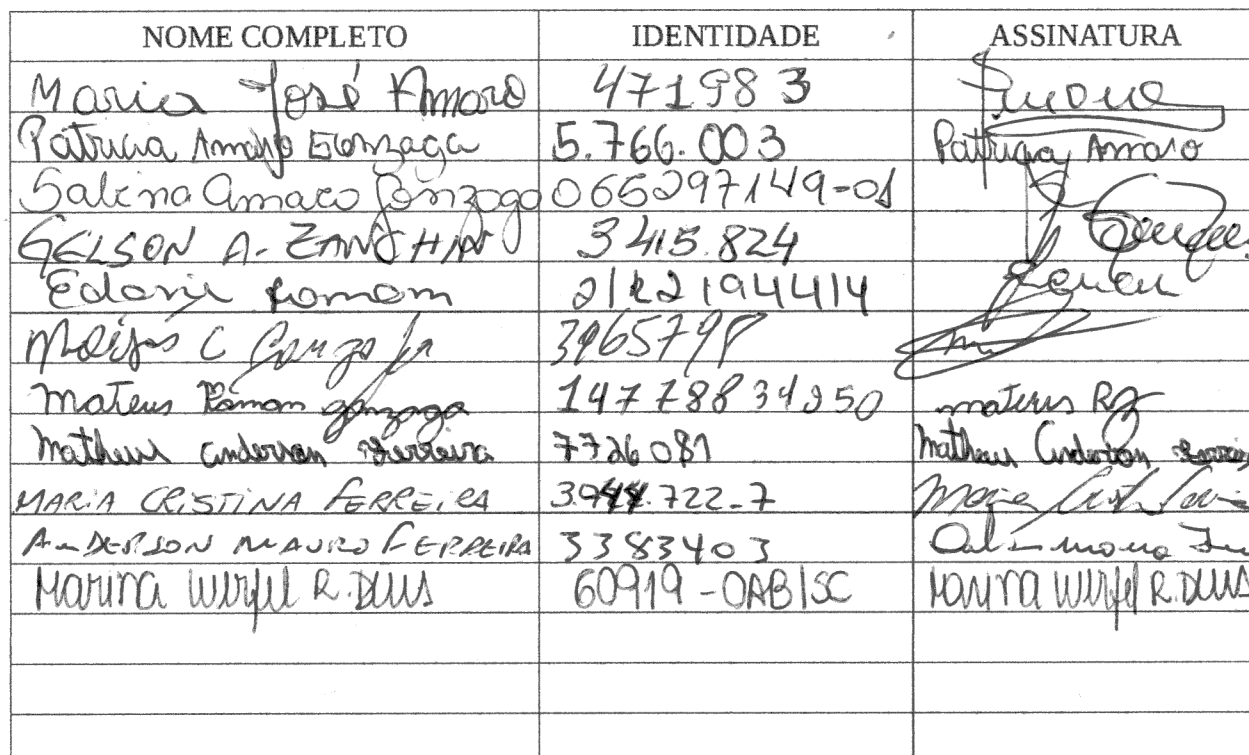 NOME COMPLETO IDENTIDADE ASSINATURA
Maria José Amaro 471983
Patricia Amaro Gonzaga 5.766.003 Patricia Amaro
Sabrina Amaro Gonzaga 065297149-01
GELSON A. 3415.824
Roman
C Gonzaga 3965798
Mateus Roman gonzaga 14778834950 mateus RG
Matheus anderson Ferreira 7726081 Matheus Anderson Ferreira
MARIA CRISTINA FERREIRA 722-7 Maria
ANDERSON MAURO FERREIRA 3383403
Marina Wurfel R. DEUS 60919-OAB/SC Marina Wurfel R. DEUS